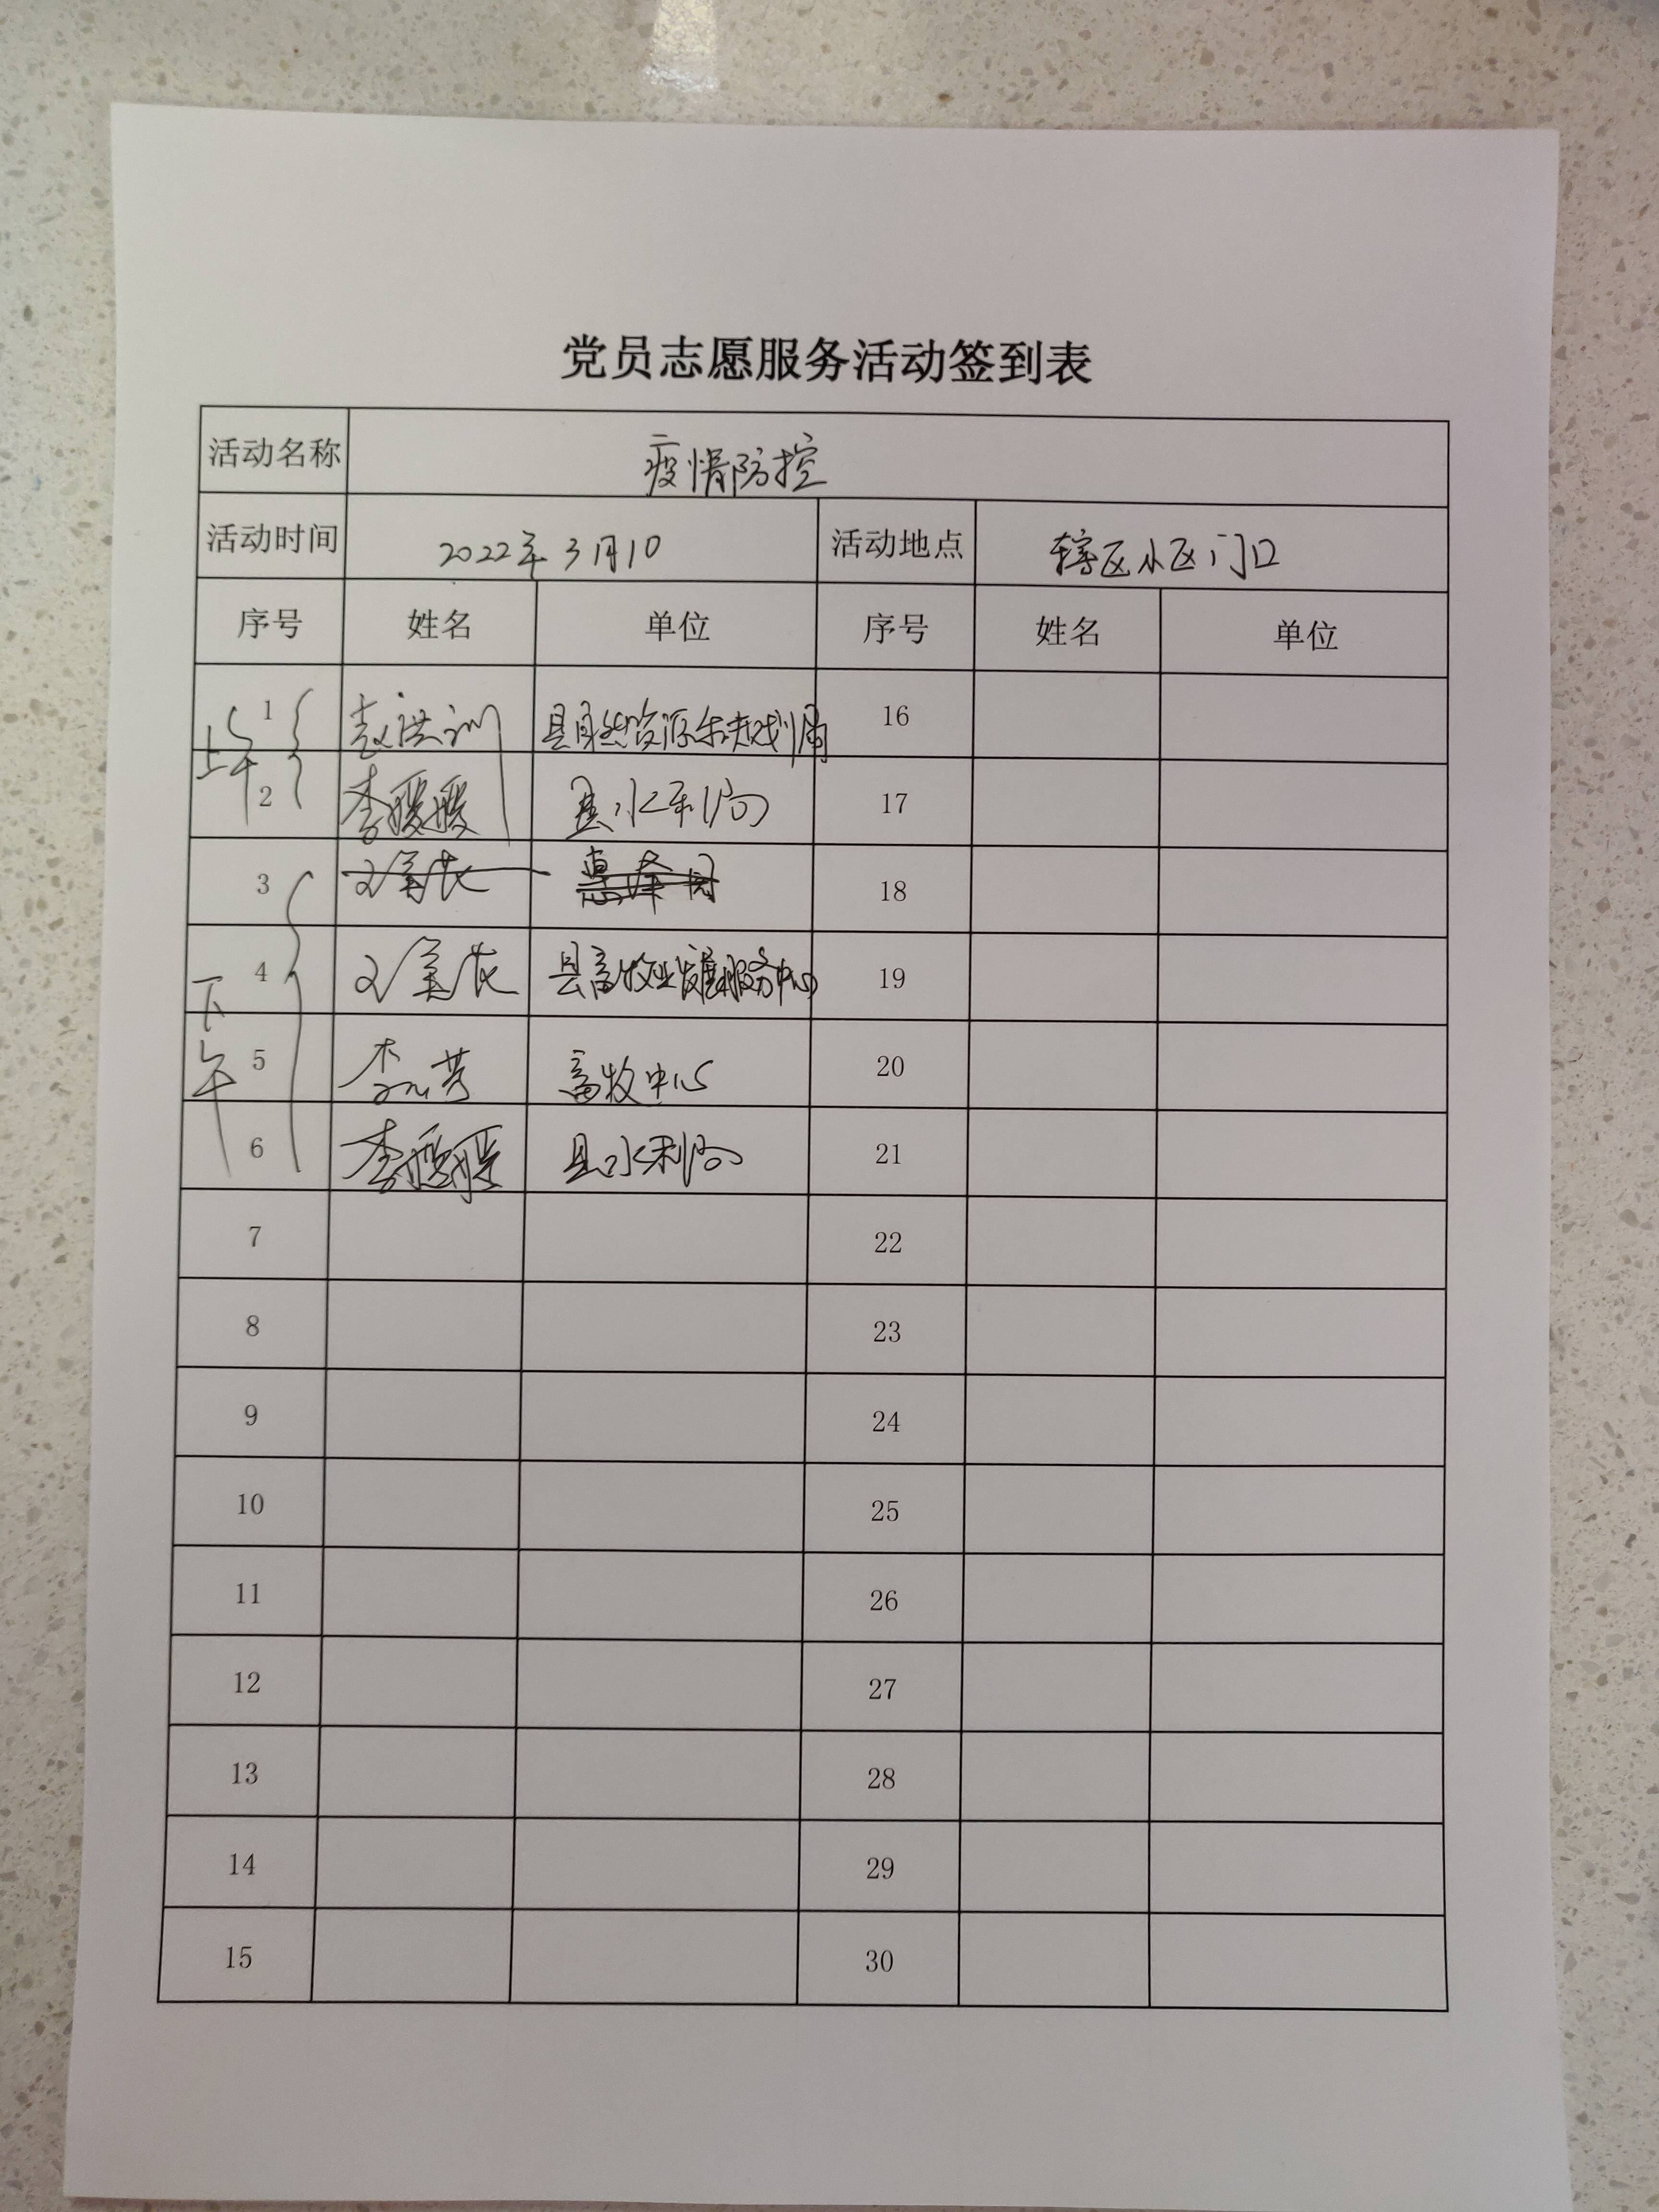 党员志愿服务活动签到表
活动名称 疫情防控
活动时间 2022年3月10 活动地点 辖区小区门口
序号 姓名 单位 序号 姓名 单位
上午
1 赵洪训 县自然资源和规划局 16
2 李媛媛 县水利局 17
3 18
下午
4 县畜牧业发展服务中心 19
5 畜牧中心 20
6 李媛媛 县水利局 21
7 22
8 23
9 24
10 25
11 26
12 27
13 28
14 29
15 30